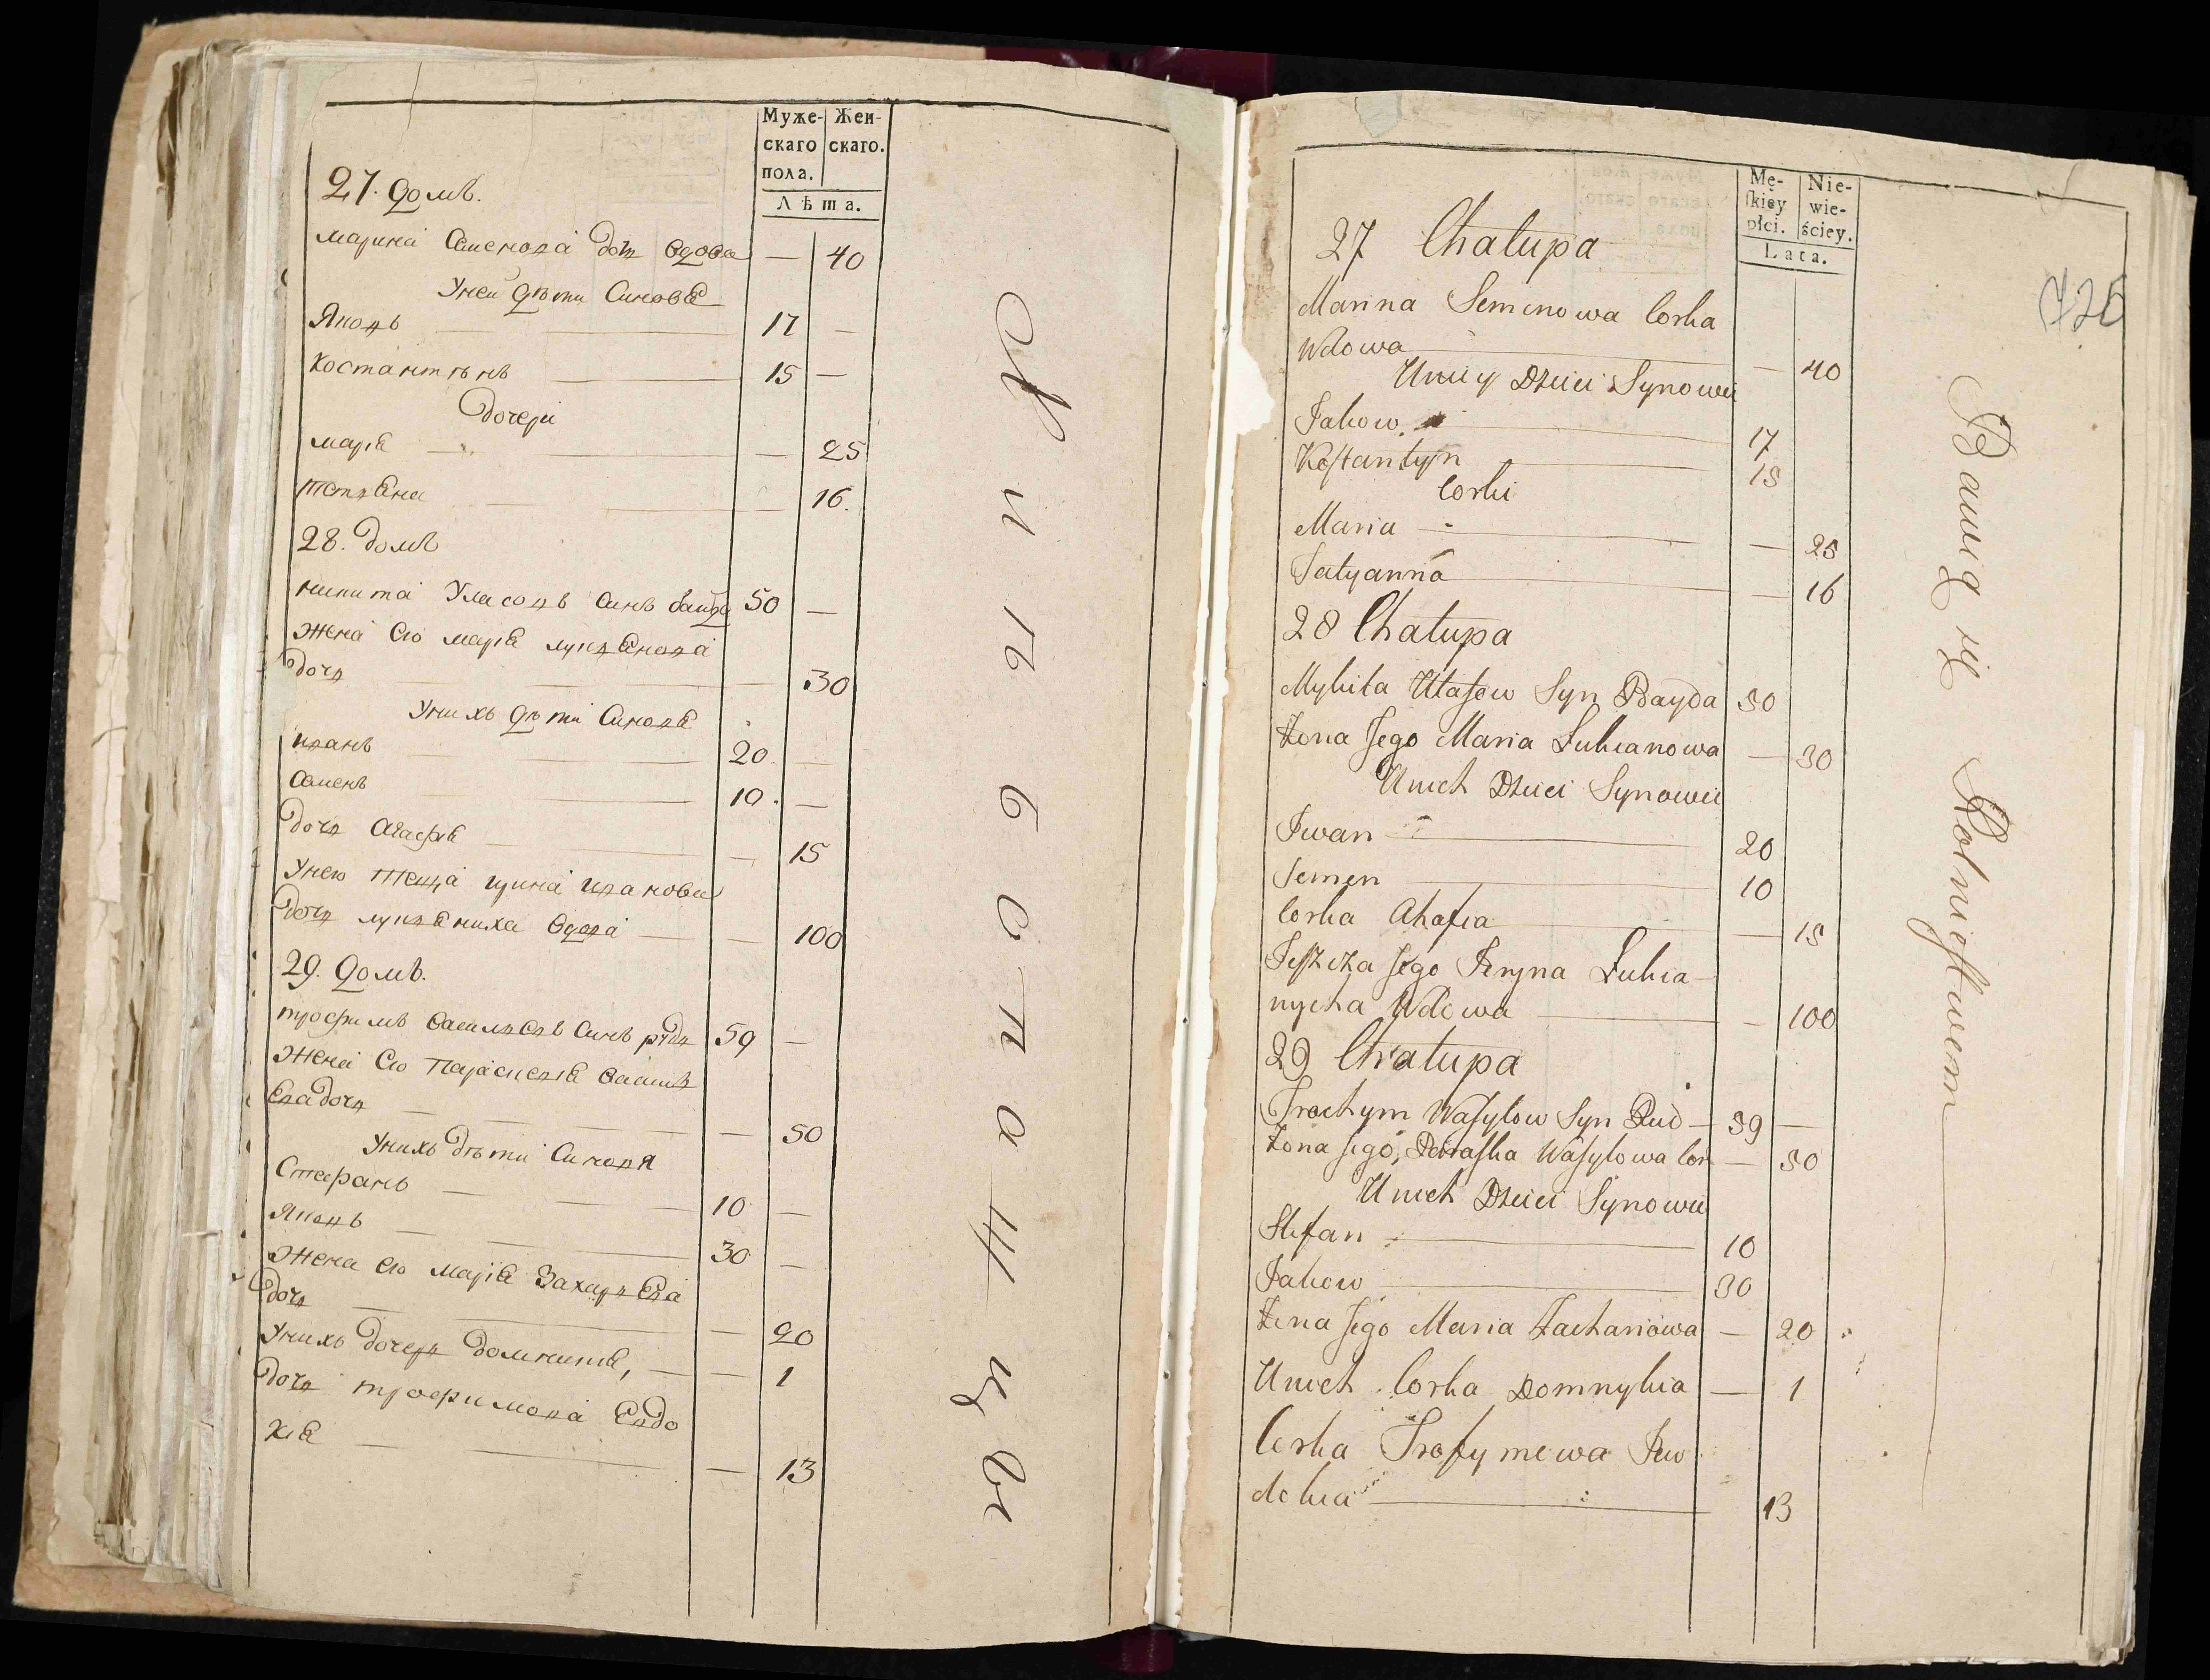 Муже-
скаго
пола.
Жен-
скаго.
Лѣта.
27. домъ.
марина Семенова дочь вдова — 40
Унеи дѣти Синове
Яковъ 17 —
Костантѣнъ 15 —
дочери
маріе — 25
тетяна — 16.
28. домъ
никита Уласовъ Синъ байда 50 —
Жена его маріе лукяенова
дочь — 30
Унихъ дѣти Синове
иванъ 20. —
Семенъ 10. —
дочь агафіе — 15
Унего теща ирина иванова
дочь лукяениха вдова — 100
29. домъ.
трофимъ василевъ Синъ рудь 59 —
Жена его Параскевіе васил
ева дочь — 50
Унихъ дѣти Синовя
Стефанъ 10 —
Яковъ 30 —
Жена его маріе Захарьева
дочь — 20
Унихъ дочерь домникие, — 1
дочь трофимова Евдо
кіе — 13
хлѣбопашцы
Mę-
skiey
płci.
Nie-
wie-
ściey.
Lata.
726
27 Chałupa
Marina Semenowa Corka
Wdowa — 40
Uniey Dzieci Synowie
Jakow 17
Kostantyn 15
Corki
Maria — 25
Tatyanna — 16
28 Chałupa
Mykita Ułasow Syn Bayda 50
Żona Jego Maria Łukianowa — 30
Unich Dzieci Synowie
Iwan 20
Semen 10
Corka Ahafia — 15
Teszcza Jego Iryna Łukia-
nycha Wdowa — 100
29 Chałupa
Trochym Wasylow Syn Rud — 59 —
Żona Jego, Paraska Wasylowa Cor — 50
Unich Dzieci Synowie
Stefan 10
Jakow 30
Żona Jego Maria Zachariowa — 20
Unich Corka Domnykia — 1
Corka Trofymowa Iew
dokia 13
Bawią się Rolnictwem